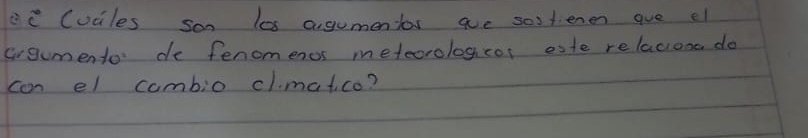 ¿¿ Cuáles son los argumentos que sostienen que el
argumento de fenomenos meteorologicos este relacionado
con el cambio climatico?